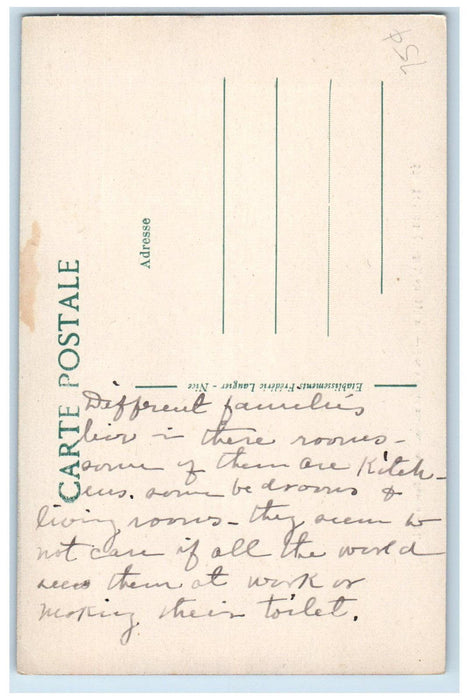 CARTE POSTALE
Adresse
Etablissements Frédéric Laugier - Nice
25¢
Different families
live in there rooms -
some of them are Kitch-
ens. some bedrooms &
living rooms - they seem to
not care if all the world
sees them at work or
making their toilet.